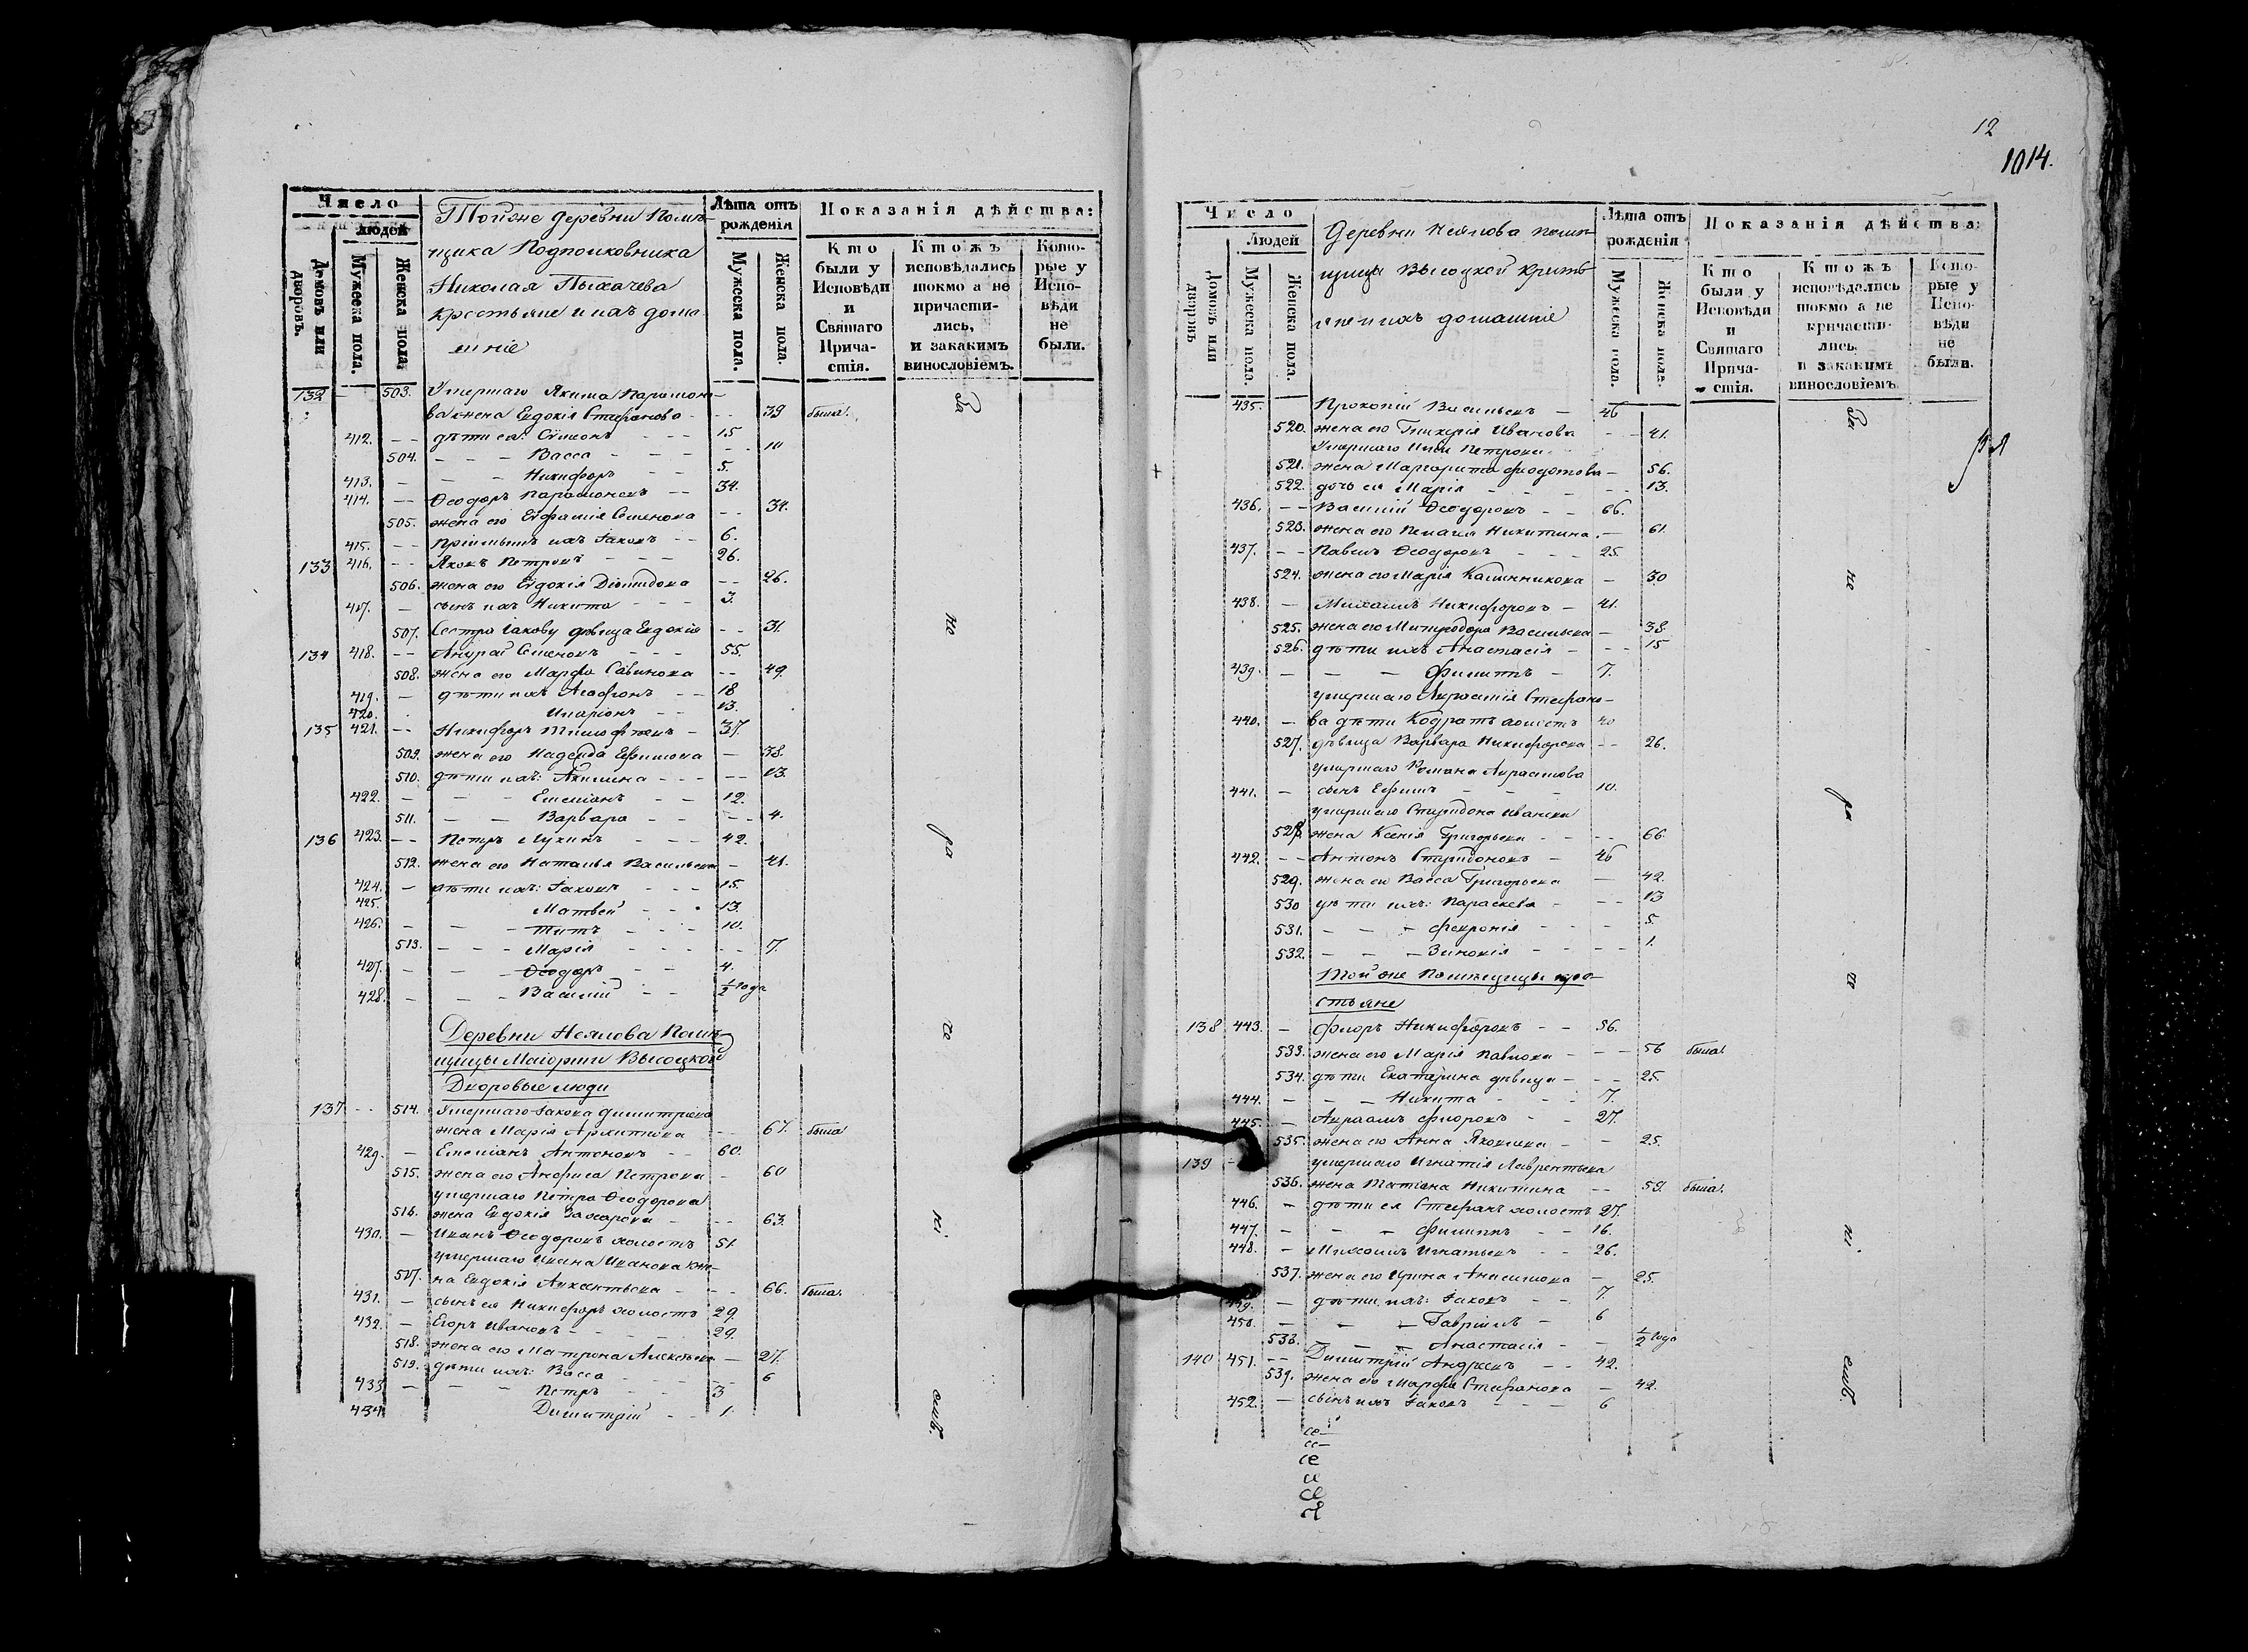 Число
людей
Домовъ или дворовъ.
Мужеска пола.
Женска пола
Тойже деревни Помѣ-
щика Подполковника
Николая Пыхачева
крестьяне и ихъ дома
шніе
Лѣта отъ рожденія
Мужеска пола.
Женска пола.
Показанія дѣйства:
Кто были у Исповѣди и Святаго Причастія.
Ктожъ исповѣдались токмо а не причастились, и закакимъ винословіемъ.
Которые у Исповѣди не были.
132 – 503. Умершаго Якима Парамоно-
ва жена Евдокія Стефанова - - - 39 была.
412. - - дѣти ея: Сѵмеонъ - - - 15
504. - - - Васса - - - 10
413. - - - Никифоръ - - 5.
414. - - Ѳеодоръ Парамоновъ - - 34.
505. жена его Евфимія Семенова - - 34.
415. - - Пріимышъ ихъ Іаковъ - - 6.
133 416. - - Яковъ Петровъ - - - 26.
506. жена его Евдокія Діомидова - - 26.
417. - сынъ ихъ Никита - - - 3.
507. Сестра Іакову дѣвица Евдокія - - 31.
134 418. - - Андрей Семеновъ - - - 55.
508. жена его Марфа Савинова - - 49.
419. - дѣти ихъ Агафонъ - - 18
420. Иларіонъ - - 13.
135 421. - - Никифоръ Тимофѣевъ - 37.
509. жена его Надежда Ефимова - 38.
510. дѣти ихъ: Акилина - - - - - 13.
422. - - - Емеліанъ - - 12.
511. - - Варвара - - - - 4.
136 423. - - Петръ Лукинъ - - - 42.
512. жена его Наталья Васильева - 41.
424. - дѣти ихъ: Іаковъ - - - 15.
425. Матвей - - - 13.
426. - - - Титъ - - - 10.
513. - - - Марія - - - - - 7.
427. - - - Ѳеодоръ - - 4.
428. - - - Василій - - ½ года
Деревни Неялова Помѣ-
щицы Маіорши Высоцкой
Дворовые люди
137 - - 514. Умершаго Іакова Димитріева
жена Марія Архипова - - 67. была
429. - Емеліанъ Антоновъ - - 60.
515. жена его Анфиса Петрова - 60
умершаго Петра Ѳеодорова
516. жена Евдокія Захарова - - - 63.
430. - Иванъ Ѳеодоровъ холостъ 51.
умершаго Ивана Иванова же-
517. на Евдокія Авксентьева - - - 66. была.
431. - сынъ ея Никифоръ холостъ 29.
432. - Егоръ Ивановъ - - - 29.
518. жена его Матрона Алексѣева - 27.
519. дѣти ихъ: Васса - - - - 6
433 - - - Петръ - - 3
434. Димитрій - - 1.
За
но
ра
че
ні.
емъ.
12
1014.
Число
Людей
Домовъ или дворовъ
Мужеска пола.
Женска пола.
Деревни Неялова помѣ-
щицы Высоцкой
домашніе
Лѣта отъ рожденія
Мужеска пола.
Женска пола.
Показанія дѣйства:
Кто были у Исповѣди и Святаго Причастія.
Ктожъ исповѣдались токмо а не причастились, и закакимъ винословіемъ.
Которые у Исповѣди не были.
435. Прокопій Васильевъ - 46
520. жена его Гликерія Иванова - - 41.
Умершаго Петрова
521. жена Маргарита Ѳиодотова - 56.
522. дочь ея Марія - - - - - 13.
436. - - Василій Ѳеодоровъ - - 66.
523. жена его Пелагея Никитина - 61.
437. - - Павелъ Ѳеодоровъ - - - 25.
524. жена его Марія Калинникова - 30
438. - Михаилъ Никифоровъ - 41.
525. жена его Митродора Васильева - 38.
526. дѣти ихъ Анастасія - - - 15
439. - - - Филиппъ - 7.
умершаго Стефано-
440. - ва дѣти Кодратъ холостъ 40
527. дѣвица Варвара Никифорова - - 26.
умершаго Романа Авраамова
441. - сынъ Ефимъ - - - 10.
умершаго Спиридона Иванова
528. жена Ксенія Григорьева - - - - 66.
442. - - Антонъ Спиридоновъ - 46
529. жена его Васса Григорьева - 42.
530 дѣти ихъ: Параскева - - - 13
531. - - - Февронія - - - 5.
532. - - - Зиновія - - - - 1.
Той же Помѣщицы кре-
стьяне
138 443. - Флоръ Никифоровъ - - 56.
533. жена его Марія Павлова - - - 56 была.
534. дѣти Екатерина дѣвица - - - 25.
444. - - - Никита - - - 7.
445. - Авраамъ Флоровъ - 27.
535. жена его Анна Яковлева - - 25.
139 - умершаго Игнатія Лаврентьева
536. жена Татіана Никитина - - 59. была.
446. - дѣти ея Стефанъ холостъ 27.
447. - - - Филиппъ - - 16.
448. - Михаилъ Игнатьевъ - - 26.
537. жена его Ирина Анисимова - 25.
449. - дѣти ихъ: Іаковъ - - 7.
450. - - - Гавріилъ - 6
538. - - - Анастасія - - ½ года
140 451. - - Димитрій Андреевъ - - 42.
539. жена его Марфа Стефанова - 42.
452. - сынъ ихъ Іаковъ - - - 6
За
но
ра
че
ні.
емъ.